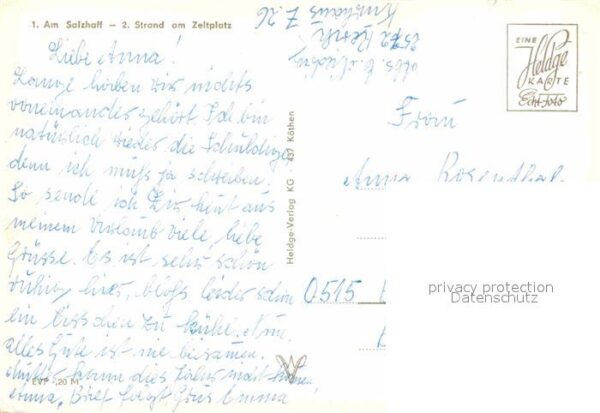 1. Am Salzhaff – 2. Strand am Zeltplatz
Liebe Anna!
Lange haben wir nichts
voneinander gehört. Ich bin
natürlich wieder die Schuldige
denn ich muß ja schreiben.
So sende ich Dir heut aus
meinem Urlaub viele, liebe
Grüsse. Es ist sehr schön
ruhig hier, bloß leider schon
ein bisschen zu kühl. Nun,
alles Gute ist nie beisamen.
Mutter kann dies Jahr nicht
Brief folgt, Grus Emma
EVP -,20 M
Heldge-Verlag KG · 437 Köthen
Kurhaus Z. 26
2572 Rerik
EINE
Heldge
KARTE
Echt-Foto
Frau
Anna Rosenthal
0515
privacy protection
Datenschutz